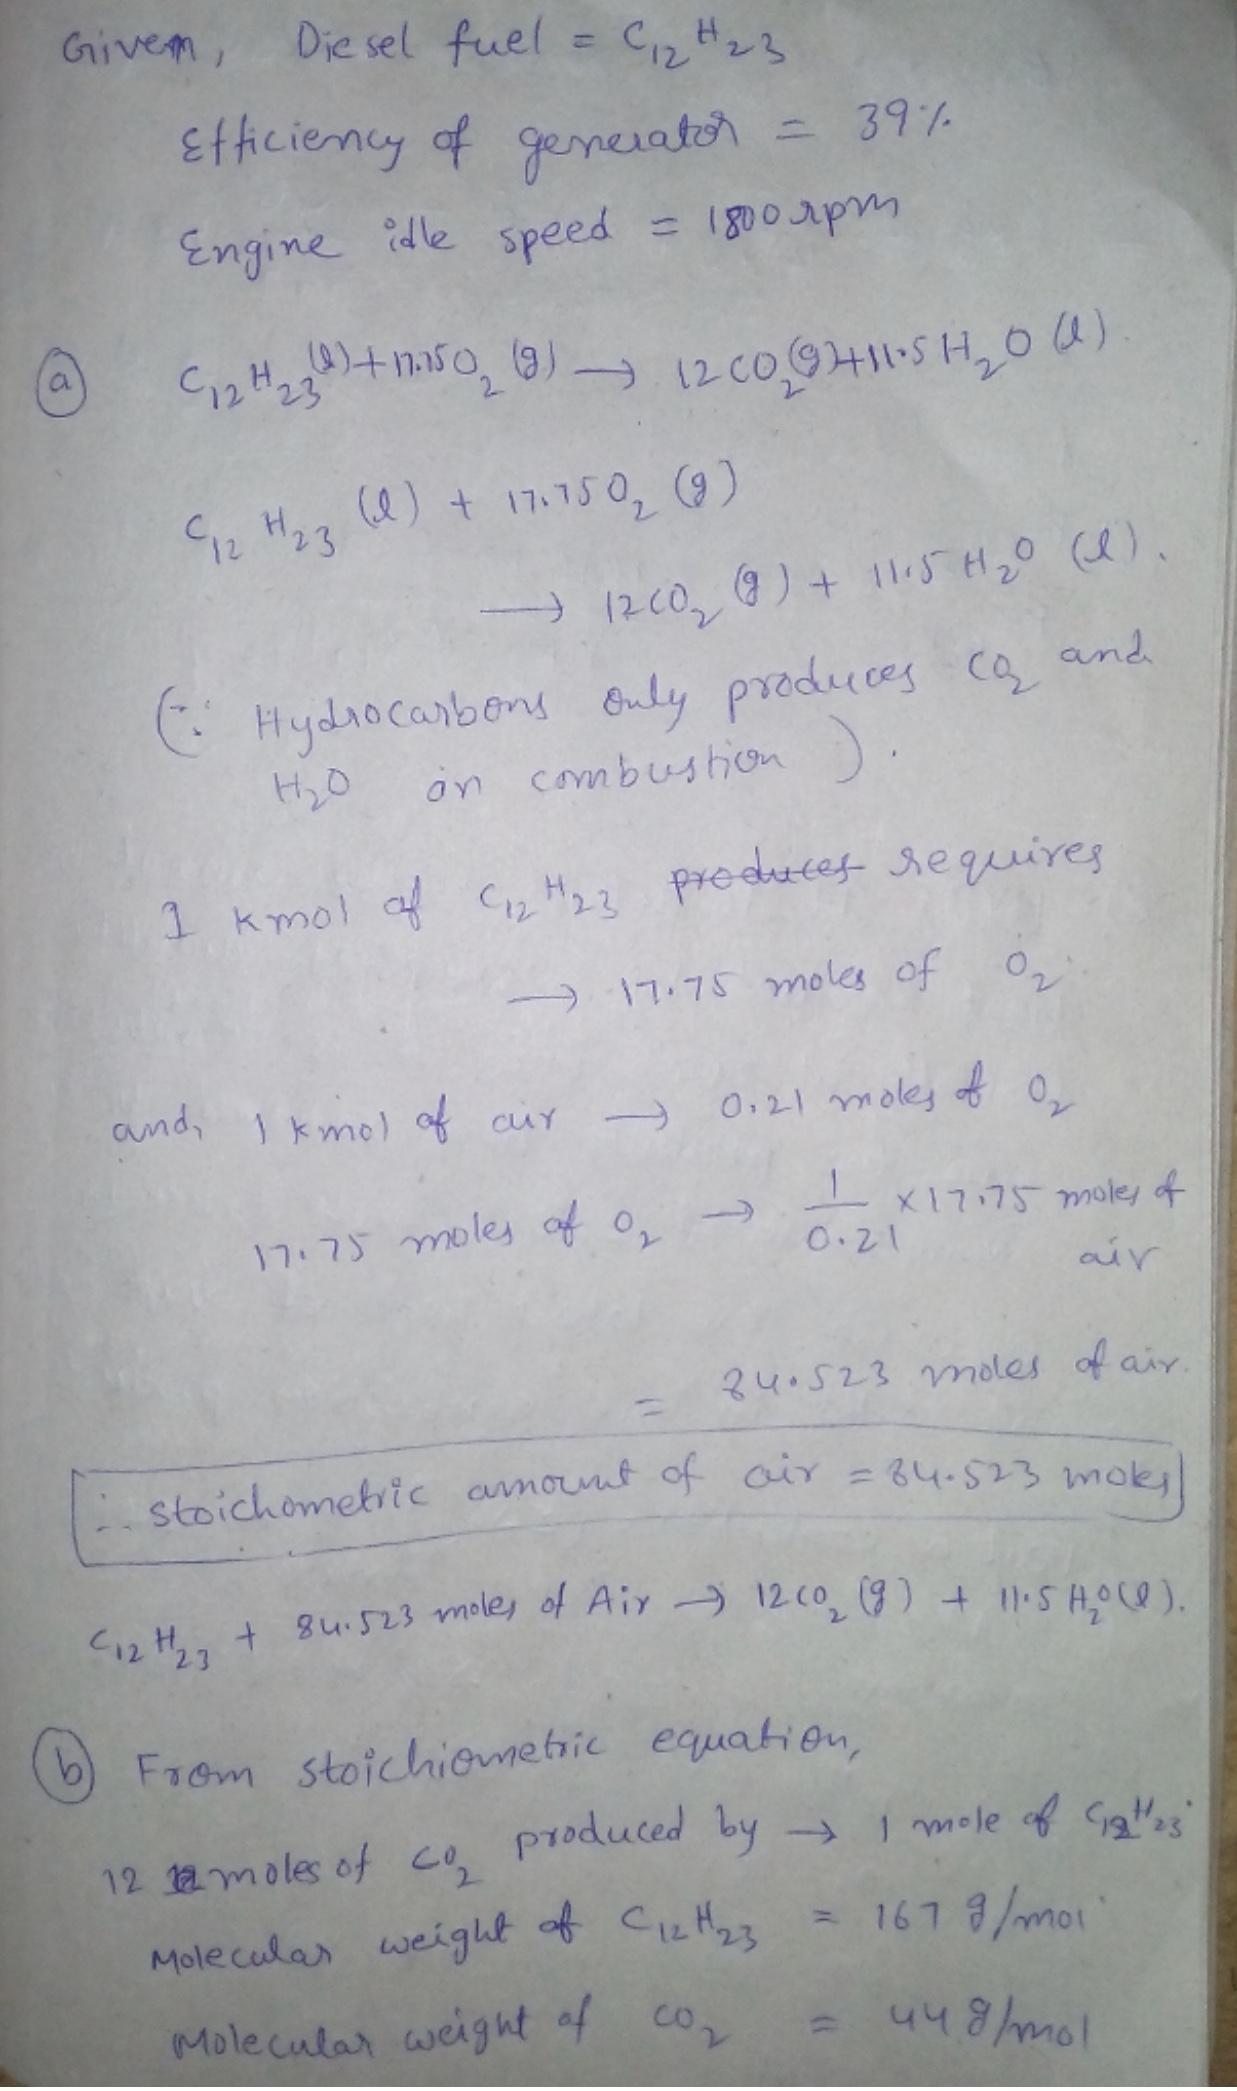 Given, Diesel fuel = C₁₂H₂₃
Efficiency of generator = 39%
Engine idle speed = 1800 rpm
(a) C₁₂H₂₃(l) + 17.75O₂ (g) → 12CO₂(g) + 11.5H₂O (l).
C₁₂H₂₃ (l) + 17.75O₂ (g)
→ 12CO₂ (g) + 11.5 H₂O (l).
(∵ Hydrocarbons only produces CO₂ and
H₂O on combustion).
1 kmol of C₁₂H₂₃ produces requires
→ 17.75 moles of O₂.
and, 1 kmol of air → 0.21 moles of O₂
17.75 moles of O₂ → 1/0.21 × 17.75 moles of
air
= 84.523 moles of air.
∴ stoichometric amount of air = 84.523 moles
C₁₂H₂₃ + 84.523 moles of Air → 12CO₂ (g) + 11.5 H₂O(l).
(b) From stoichiometric equation,
12 moles of CO₂ produced by → 1 mole of C₁₂H₂₃.
Molecular weight of C₁₂H₂₃ = 167 g/mol
Molecular weight of CO₂ = 44 g/mol